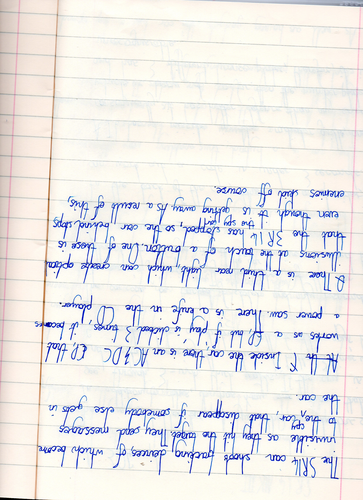 The SR14 can shoots tracking devices of which become
invisible as they hit the target. They send messages
to the spy car, that disappear if somebody else gets in
the car.
At the Inside the car there is an AC/DC CD, that
works as a CD, but if 'play' is clicked 3 times, it becomes
a power saw. There is a knife in the CD player.
2. There is a that rear light, which can create optical
illusions at the touch of a button. One of these is
that the SR14 has stopped, so the car behind stops
even though the spy car is getting away. As a result of this,
enemies skid off course.